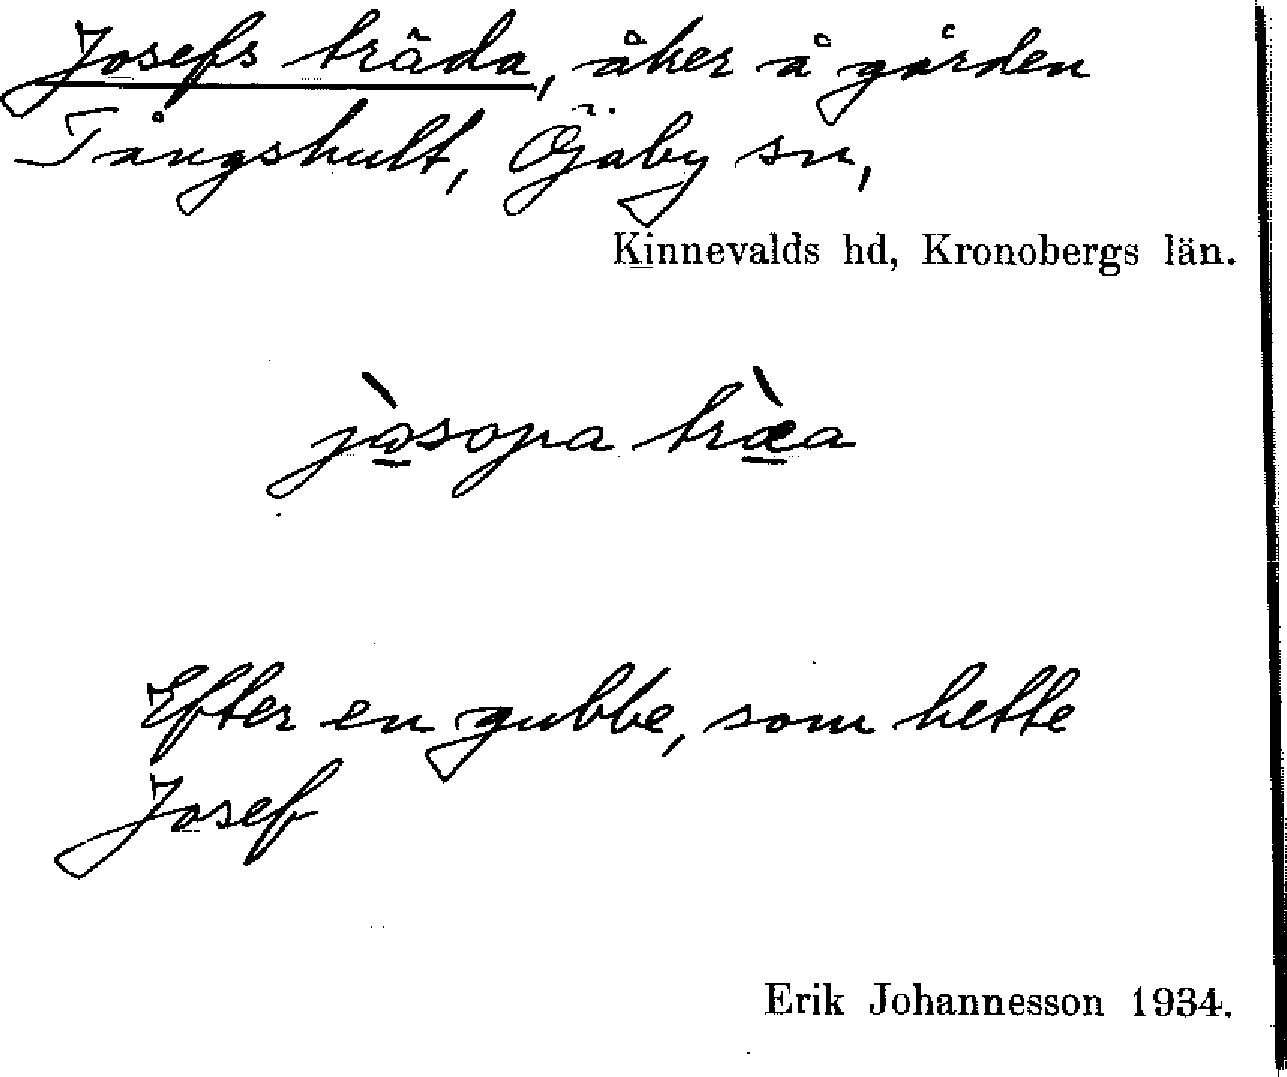 Josefs träda, åker å gården
Tångshult, Öjaby sn,
Kinnevalds hd, Kronobergs län.
jòsopa træ̀a
Efter en gubbe, som hette
Josef
Erik Johannesson 1934.